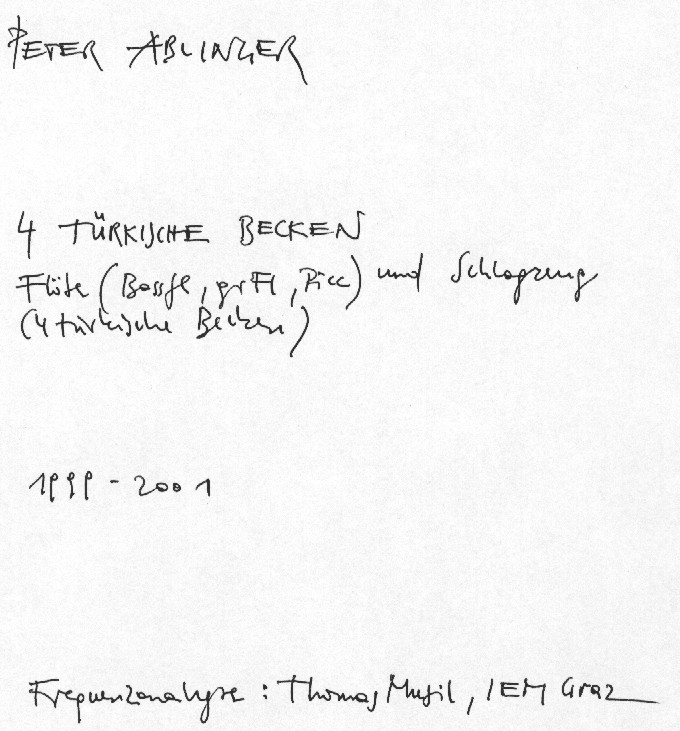 PETER ABLINGER
4 TÜRKISCHE BECKEN
Flöte (Bassfl, grFl, Picc) und Schlagzeug
(4 türkische Becken)
1999 - 2001
Frequenzanalyse : Thomas Musil, IEM Graz